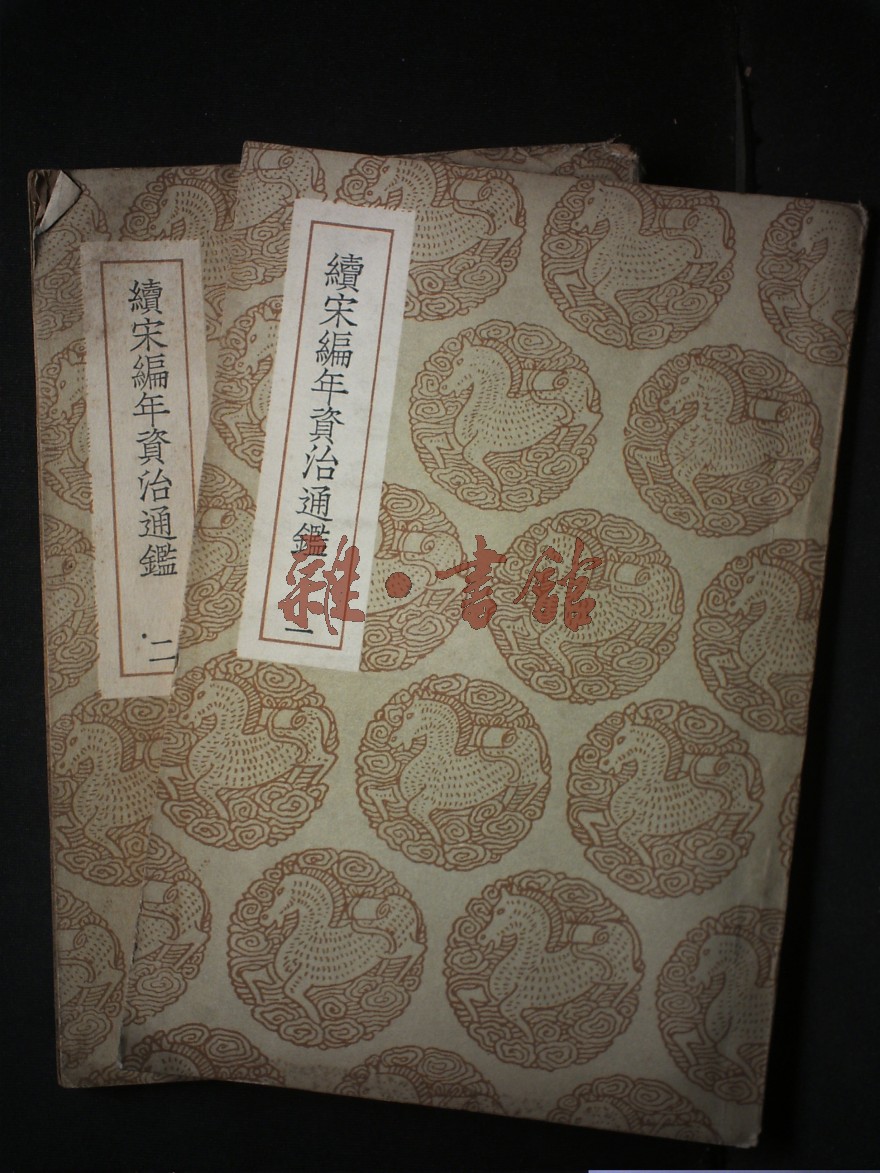 續宋編年資治通鑑
一
續宋編年資治通鑑
二
雜·書館